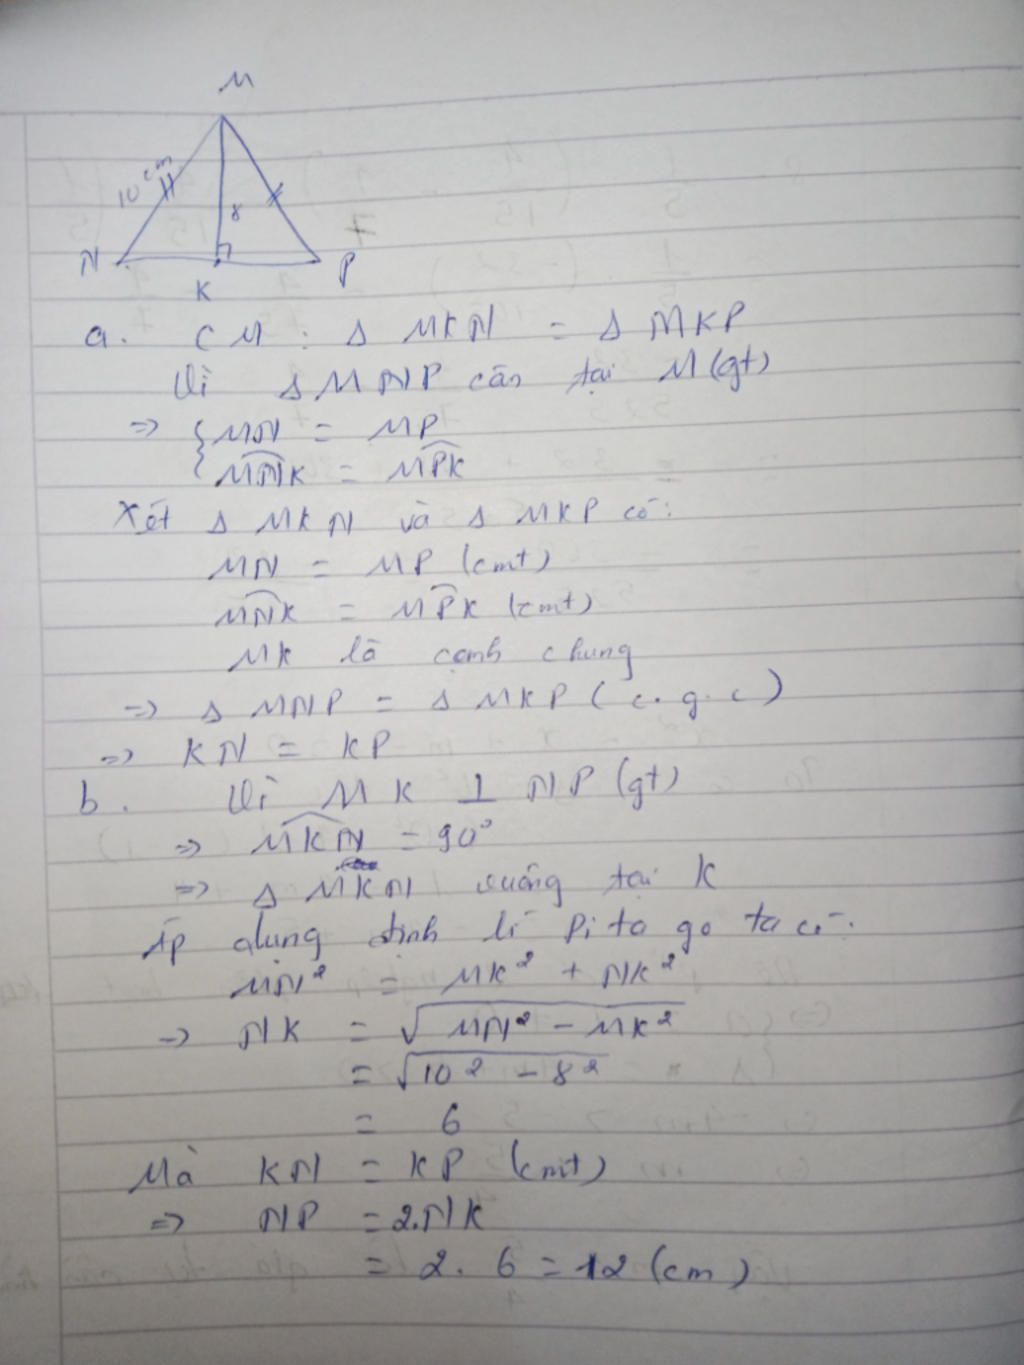 M
10 cm
8
N
K
P
a. CM : Δ MKN = Δ MKP
Vì Δ MNP cân tại M (gt)
=> { MN = MP
{ MNK = MPK
Xét Δ MKN và Δ MKP có:
MN = MP (cmt)
MNK = MPK (cmt)
MK là cạnh chung
=> Δ MNP = Δ MKP (c.g.c)
=> KN = KP
b. Vì MK ⊥ NP (gt)
=> MKN = 90°
=> Δ MKN vuông tại K
Áp dụng định lí Pi ta go ta có:
MN² = MK² + NK²
=> NK = √MN² - MK²
= √10² - 8²
= 6
Mà KN = KP (cmt)
=> NP = 2.NK
= 2. 6 = 12 (cm)